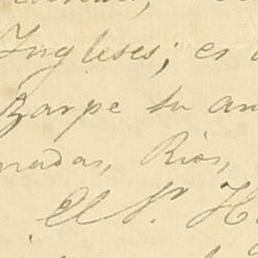 Ingleses; es
Zarpe su an
nadas, Rios,
El Sr. H